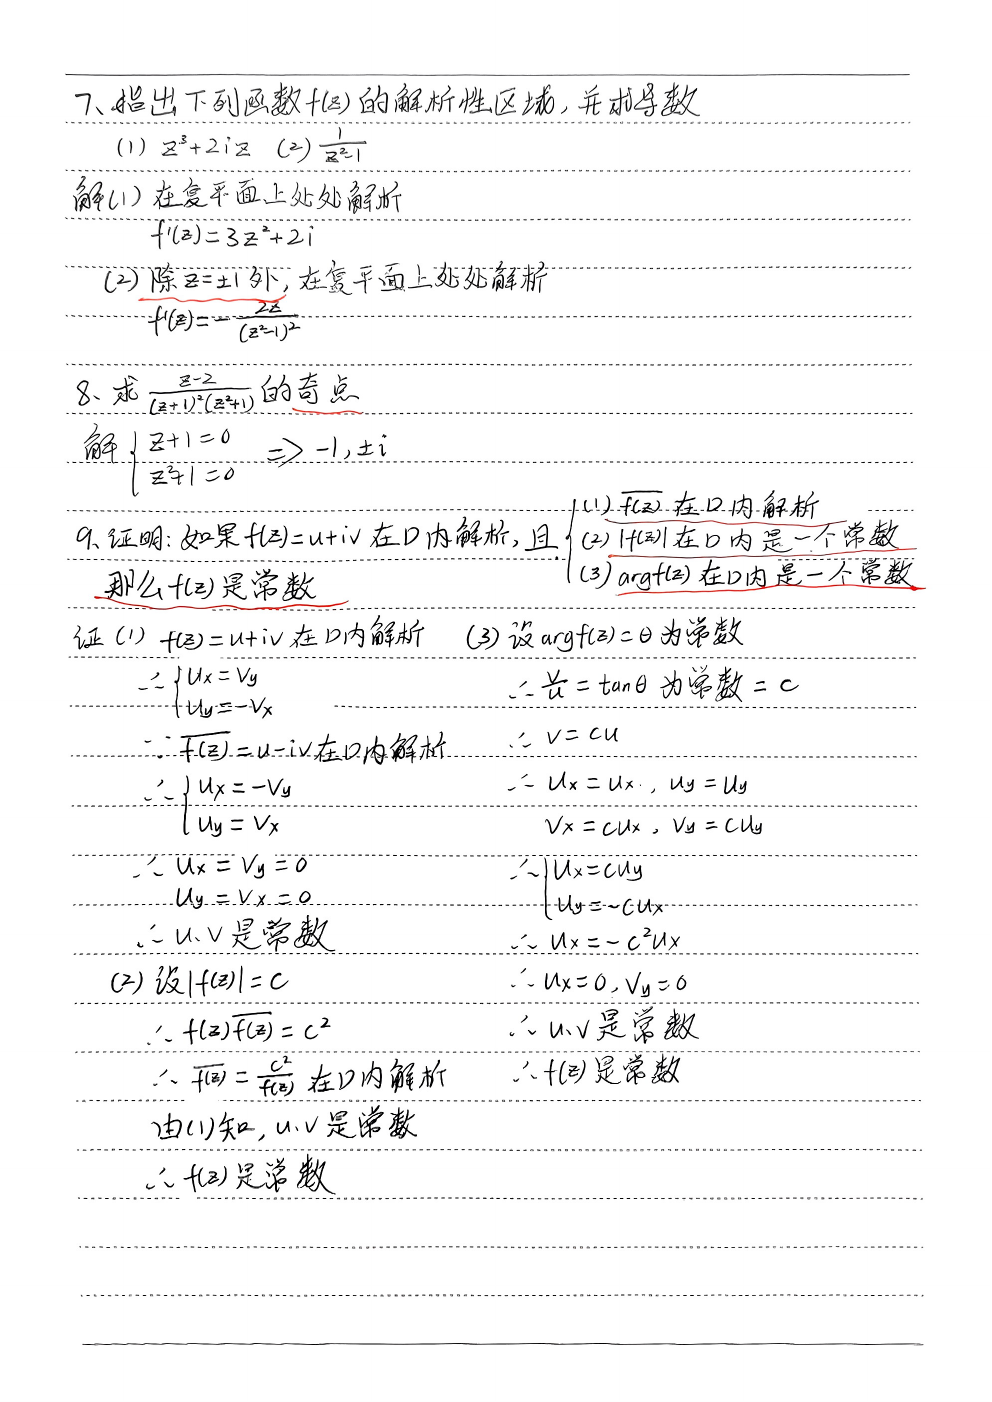 7、指出下列函数f(z)的解析性区域,并求导数
(1) z³+2iz (2) 1/(z²-1)
解(1) 在复平面上处处解析
f'(z)=3z²+2i
(2) 除z=±1外,在复平面上处处解析
f'(z)=-2z/(z²-1)²
8、求 (z-2)/((z+1)²(z²+1)) 的奇点
解 { z+1=0
z²+1=0 => -1,±i
9、证明:如果f(z)=u+iv在D内解析,且 { (1) \overline{f(z)} 在D内解析
(2) |f(z)|在D内是一个常数
(3) argf(z)在D内是一个常数
那么f(z)是常数
证(1) f(z)=u+iv在D内解析
∴ { Ux=Vy
Uy=-Vx
∵ \overline{f(z)}=u-iv在D内解析
∴ { Ux=-Vy
Uy=Vx
∴ Ux=Vy=0
Uy=Vx=0
∴ u、v是常数
(2) 设|f(z)|=c
∴ f(z)\overline{f(z)}=c²
∴ \overline{f(z)}=c²/f(z) 在D内解析
由(1)知,u、v是常数
∴ f(z)是常数
(3) 设argf(z)=θ为常数
∴ v/u=tanθ为常数=c
∴ v=cu
∴ Ux=Ux,Uy=Uy
Vx=cUx,Vy=cUy
∴ { Ux=cUy
Uy=-cUx
∴ Ux=-c²Ux
∴ Ux=0,Vy=0
∴ u、v是常数
∴ f(z)是常数